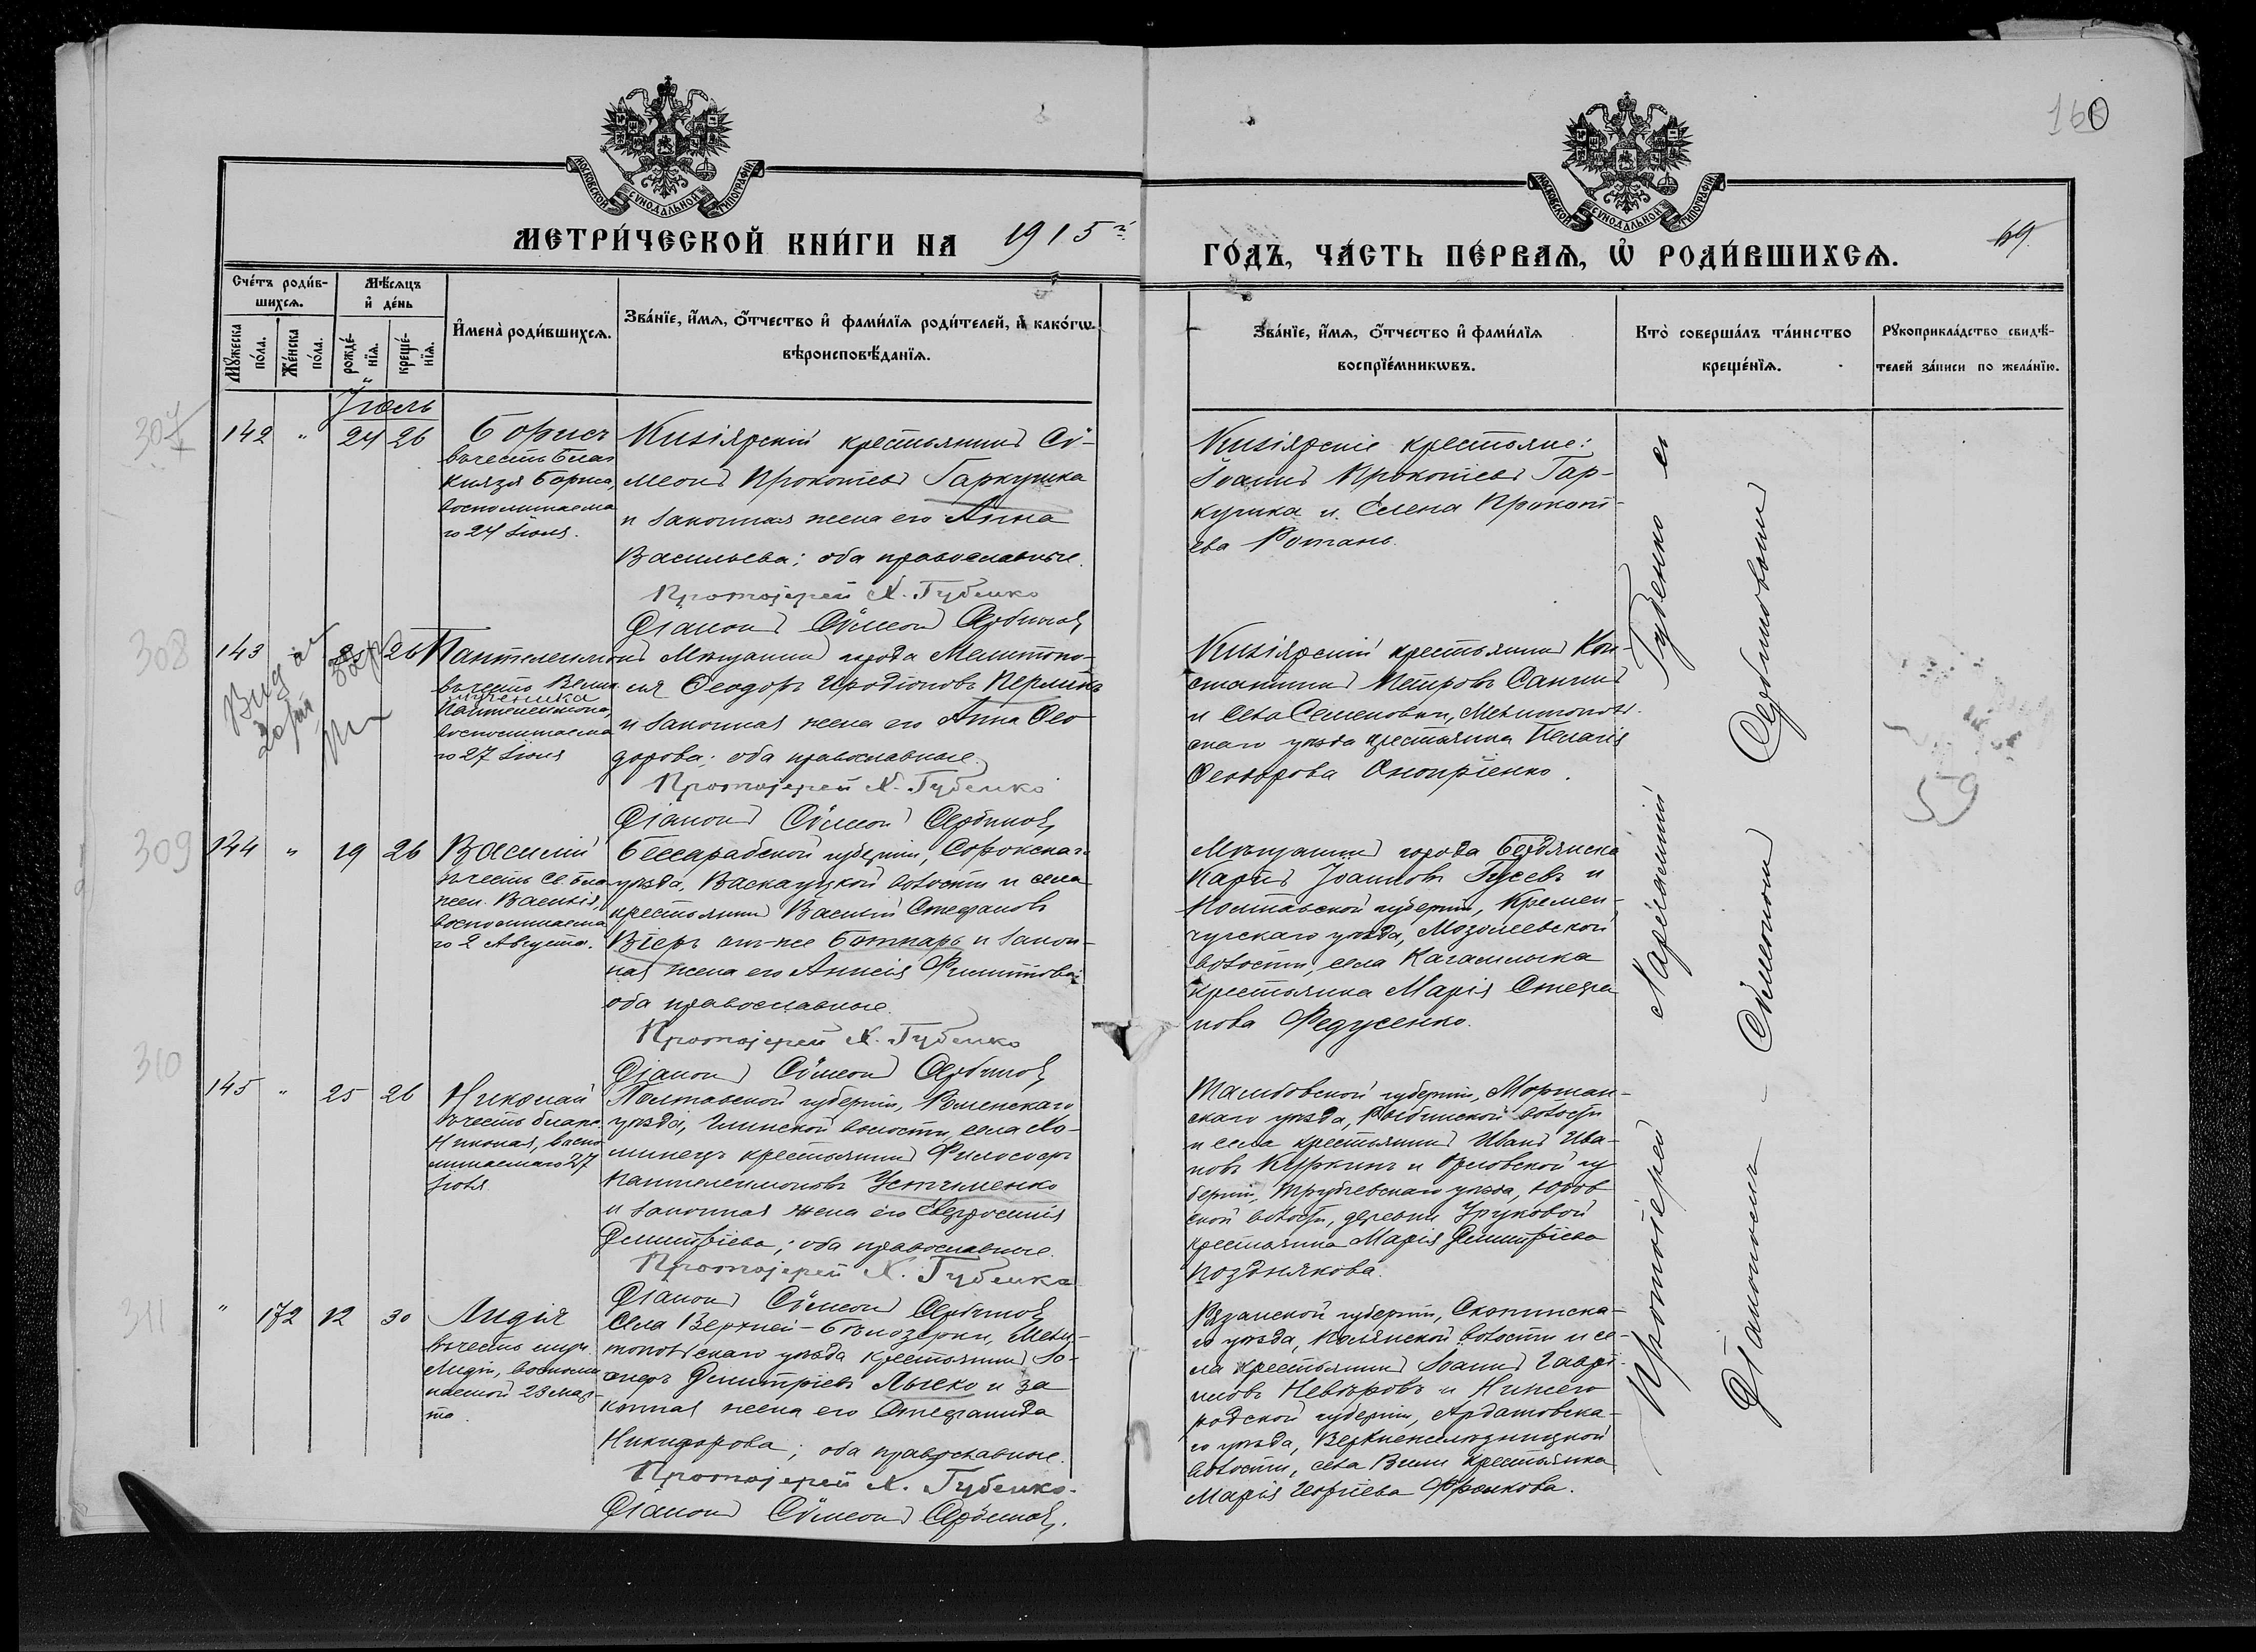 160
МОСКОВСКОЙ СѴНОДАЛЬНОЙ ТИПОГРАФІИ
МОСКОВСКОЙ СѴНОДАЛЬНОЙ ТИПОГРАФІИ
МЕТРИ́ЧЕСКОЙ КНИ́ГИ НА 1915й
ГО́ДЪ, ЧА́СТЬ ПЕ́РВАѦ, Ѡ҆ РОДИ́ВШИХСѦ.
69.
Сче́тъ роди́в-
шихсѧ.
Мꙋ́жеска
по́ла.
Же́нска
по́ла.
Мѣ́сѧцъ
и҆ де́нь
рожде́-
нїѧ.
креще́-
нїѧ.
И҆мена̀ роди́вшихсѧ.
Зва́нїе, и҆́мѧ, ѻ҆́тчество и҆ фами́лїѧ роди́телей, и҆ како́гѡ
вѣроисповѣ́данїѧ.
Зва́нїе, и҆́мѧ, ѻ҆́тчество и҆ фами́лїѧ
воспрїе́мникѡвъ.
Кто̀ соверша́лъ та́инство
креще́нїѧ.
Рꙋкоприкла́дство свидѣ́-
телей за́писи по жела́нїю.
Іюль
307
142 " 24 26
Борисъ
въ честь благ
Князя Бориса,
воспоминаема
го 24 Іюля.
Кизіярскій крестьянинъ Сѵ-
меонъ Прокопіевъ Гаркушка
и законная жена его Анна
Васильева; оба православные.
Протоіерей Х. Губенко
Діаконъ Сѵмеонъ Сербиновъ
Кизіярскіе крестьяне:
Іоаннъ Прокопіевъ Гар-
кушка и Елена Прокопі-
ева Ротань.
308
143 26
Пантелеимонъ
въ честь Велик
мученика
Пантелеимона,
воспоминаема
го 27 Іюля
Мѣщанинъ города Мелитопо-
ля Ѳеодоръ Иродіоновъ Перминъ
и законная жена его Анна Ѳео
дорова; оба православные.
Протоіерей Х. Губенко
Діаконъ Сѵмеонъ Сербиновъ
Кизіярскій крестьянинъ Кон-
стантинъ Петровъ Санинъ
и села Семеновки, Мелитополь-
скаго уѣзда крестьянка Пелагія
Ѳеодорова Оноприенко.
59
309
144 " 19 26
Василій
въ честь Св. бла
жен. Василія,
воспоминаема
го 2 Августа.
Бессарабской губерніи, Сорокскаго
уѣзда, Васкауцкой волости и села
крестьянинъ Василій Стефановъ
Віеръ онъ-же Ботнарь и закон-
ная жена его Анисія Филиппова;
оба православные.
Протоіерей Х. Губенко
Діаконъ Сѵмеонъ Сербиновъ
Мѣщанинъ города Бердянска
Карпъ Іоанновъ Гусевъ и
Полтавской губерніи, Кремен-
чугскаго уѣзда, Мозолеевской
волости, села Кагамлыка
крестьянка Марія Стефа
нова Федусенко.
310
145 " 25 26
Николай
въ честь блаж.
Николая, воспо
минаемаго 27
Іюля
Полтавской губерніи, Роменскаго
уѣзда, Глинской волости, села Хо-
минецъ крестьянинъ Философъ
Пантелеимоновъ Устименко
и законная жена его Евфросинія
Димитріева; оба православные.
Протоіерей Х. Губенко
Діаконъ Сѵмеонъ Сербиновъ
Тамбовской губерніи, Моршан-
скаго уѣзда, волости
и села крестьянинъ Иванъ Ива-
новъ Куркинъ и Орловской гу
берніи, Трубчевскаго уѣзда, Юров
ской волости, деревни
крестьянка Марія Димитріева
Позднякова.
311
" 172 12 30
Лидія
въ честь муч.
Лидіи, воспоми
наемой 23 мар-
та.
Села Верхней-Бѣлозерки, Мели-
топольскаго уѣзда крестьянинъ
Димитріевъ Лысеко и за
конная жена его Стефанида
Никифорова; оба православные.
Протоіерей Х. Губенко.
Діаконъ Сѵмеонъ Сербиновъ.
Рязанской губерніи, Скопинска-
го уѣзда, волости и се-
ла крестьянинъ Іоаннъ Гаврі-
иловъ Невѣровъ и Нижего
родской губерніи, Ардатовска-
го уѣзда,
волости, села крестьянка
Марія Георгіева Фролкова.
Протоіерей Харлампій Губенко съ
Діакономъ – Сѵмеономъ Сербиновымъ